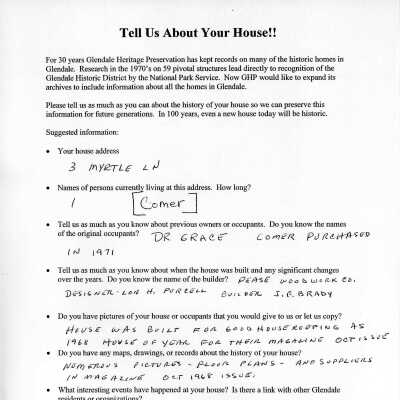 Tell Us About Your House!!
For 30 years Glendale Heritage Preservation has kept records on many of the historic homes in
Glendale. Research in the 1970's on 59 pivotal structures lead directly to recognition of the
Glendale Historic District by the National Park Service. Now GHP would like to expand its
archives to include information about all the homes in Glendale.
Please tell us as much as you can about the history of your house so we can preserve this
information for future generations. In 100 years, even a new house today will be historic.
Suggested information:
• Your house address
3 MYRTLE LN
• Names of persons currently living at this address. How long?
1 [Comer]
• Tell us as much as you know about previous owners or occupants. Do you know the names
of the original occupants? DR GRACE COMER PURCHASED
IN 1971
• Tell us as much as you know about when the house was built and any significant changes
over the years. Do you know the name of the builder? PEASE WOODWORK CO.
DESIGNER - H. PURCELL BUILDER J.E. BRADY
• Do you have pictures of your house or occupants that you would give to us or let us copy?
HOUSE WAS BUILT FOR GOOD HOUSEKEEPING AS
1968 HOUSE OF YEAR FOR THEIR MAGAZINE OCT ISSUE
• Do you have any maps, drawings, or records about the history of your house?
NUMEROUS PICTURES - FLOOR PLANS - AND SUPPLIERS
IN MAGAZINE OCT 1968 ISSUE.
• What interesting events have happened at your house? Is there a link with other Glendale
residents or organizations?